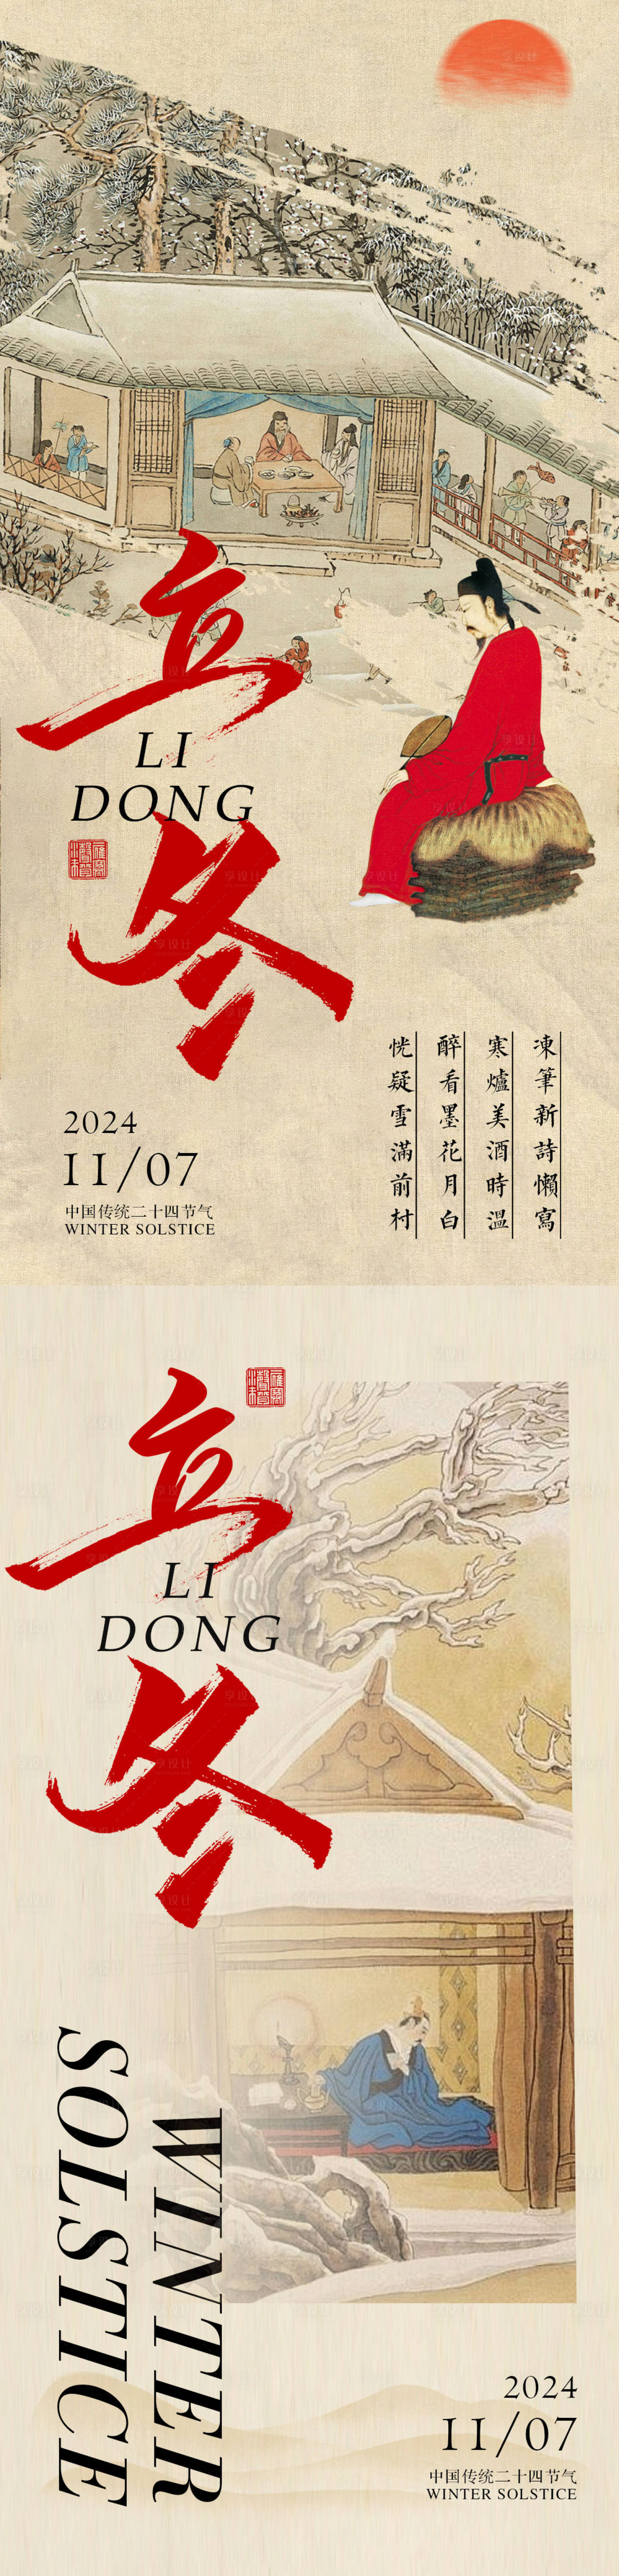 立
LI
DONG
冬
2024
11/07
中国传统二十四节气
WINTER SOLSTICE
凍筆新詩懶寫
寒爐美酒時溫
醉看墨花月白
恍疑雪滿前村
立
LI
DONG
冬
WINTER
SOLSTICE
2024
11/07
中国传统二十四节气
WINTER SOLSTICE